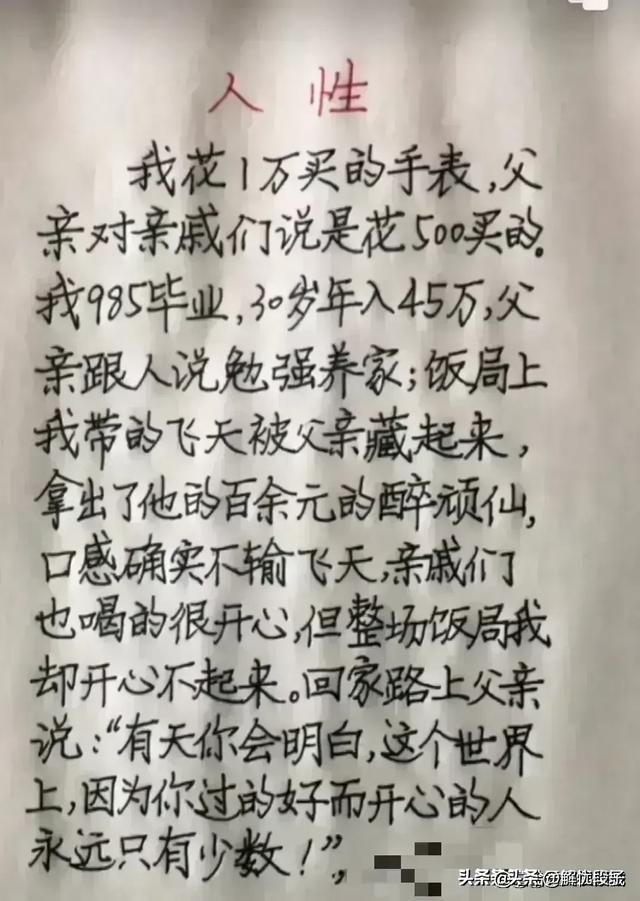 人性
我花1万买的手表,父
亲对亲戚们说是花500买的.
我985毕业,30岁年入45万,父
亲跟人说勉强养家;饭局上
我带的飞天被父亲藏起来,
拿出了他的百余元的醉顽仙,
口感确实不输飞天,亲戚们
也喝的很开心,但整场饭局我
却开心不起来。回家路上父亲
说:“有天你会明白,这个世界
上,因为你过的好而开心的人
永远只有少数!”,
头条 @解忧段子